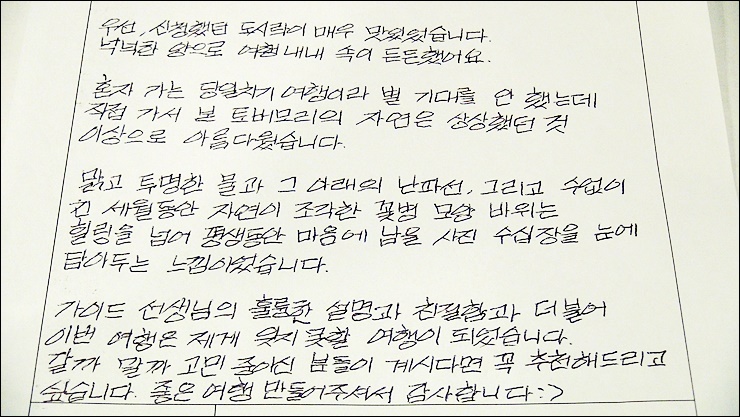 우선, 신청했던 도시락이 매우 맛있었습니다.
넉넉한 양으로 여행 내내 속이 든든했어요.
혼자 가는 당일치기 여행이라 별 기대를 안 했는데
직접 가서 본 토버모리의 자연은 상상했던 것
이상으로 아름다웠습니다.
맑고 투명한 물과 그 아래의 난파선, 그리고 수없이
긴 세월동안 자연이 조각한 꽃병 모양 바위는
힐링을 넘어 평생동안 마음에 남을 사진 수십장을 눈에
담아두는 느낌이었습니다.
가이드 선생님의 훌륭한 설명과 친절함과 더불어
이번 여행은 제게 잊지 못할 여행이 되었습니다.
갈까 말까 고민 중이신 분들이 계시다면 꼭 추천해드리고
싶습니다. 좋은 여행 만들어주셔서 감사합니다 :>